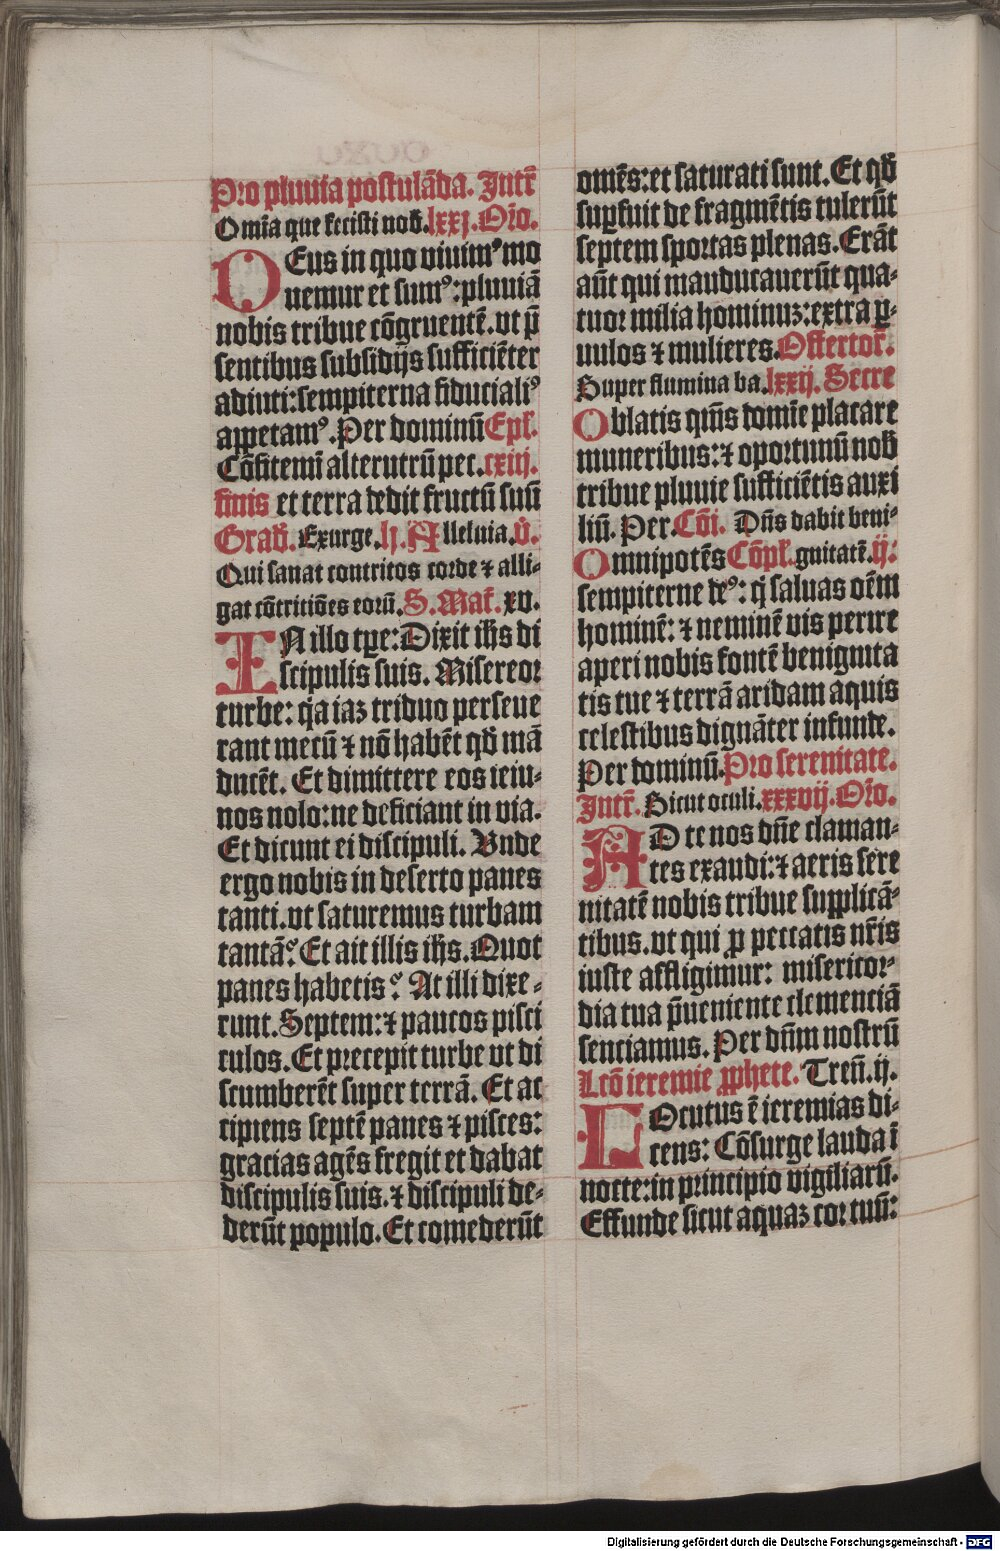 Pro pluuia postulāda. Intr̄
Omīa que fecisti nob̄. lxxj. Orō.
DEus in quo viuimꝰ mo
uemur et sumꝰ: pluuiā
nobis tribue cōgruentē. vt p̄
sentibus subsidijs sufficiēter
adiuti: sempiterna fiducialiꝰ
appetamꝰ. Per dominū Epl̄.
Cōfitemī alterutrū pec. cxiij.
finis et terra dedit fructū suū
Grad̄. Exurge. lj. Alleluia. v̄.
Qui sanat contritos corde ⁊ alli-
gat cōtritiōes eorū. S. Mar̄. xv.
IN illo tp̄e: Dixit ih̄s di
scipulis suis. Misereor
turbe: q̄a iaꝫ triduo perseue
rant mecū ⁊ nō habēt qd̄ mā
ducēt. Et dimittere eos ieiu-
nos nolo: ne deficiant in via.
Et dicunt ei discipuli. Vnde
ergo nobis in deserto panes
tanti. vt saturemus turbam
tantā? Et ait illis ih̄s. Quot
panes habetis? At illi dixe-
runt. Septem: ⁊ paucos pisci
culos. Et precepit turbe vt di
scumberēt super terrā. Et ac
cipiens septē panes ⁊ pisces:
gracias agēs fregit et dabat
discipulis suis. ⁊ discipuli de-
derūt populo. Et comederūt
omēs: et saturati sunt. Et qd̄
suꝑfuit de fragmētis tulerūt
septem sportas plenas. Erāt
aūt qui manducauerūt qua-
tuor milia hominuꝫ: extra ꝑ-
uulos ⁊ mulieres. Offertor̄.
Super flumina ba. lxxij. Secre
Oblatis qm̄s domīe placare
muneribus: ⁊ oportunū nob̄
tribue pluuie sufficiētis auxi
liū. Per. Cōi. Dn̄s dabit beni-
Omnipotēs Cōpl̄. gnitatē. ij:
sempiterne deꝰ: q̄ saluas oēm
hominē: ⁊ neminē vis perire
aperi nobis fontē benignita
tis tue ⁊ terrā aridam aquis
celestibus dignāter infunde.
Per dominū. Pro serenitate.
Intr̄. Sicut oculi. xxxvij. Orō.
AD te nos dn̄e claman-
tes exaudi: ⁊ aeris sere
nitatē nobis tribue supplicā-
tibus. vt qui ꝓ peccatis nr̄is
iuste affligimur: misericor-
dia tua p̄ueniente clemenciā
senciamus. Per dn̄m nostrū
Lcō ieremie ꝓphete. Tren̄. ij.
LOcutus ē ieremias di-
cens: Cōsurge lauda ī
nocte: in principio vigiliarū.
Effunde sicut aquaꝫ cor tuū:
Digitalisierung gefördert durch die Deutsche Forschungsgemeinschaft - DFG